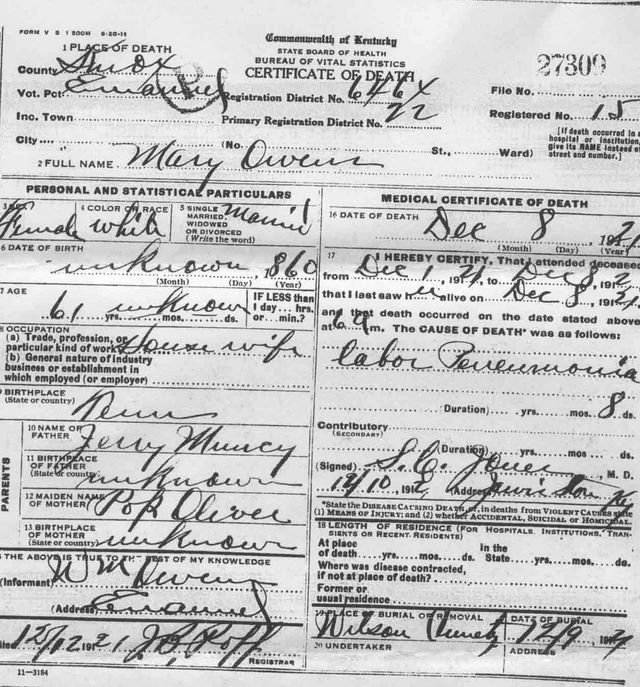 FORM V S 1 500M 6-20-11
Commonwealth of Kentucky
STATE BOARD OF HEALTH
BUREAU OF VITAL STATISTICS
CERTIFICATE OF DEATH
27309
1 PLACE OF DEATH
County Knox
Vot. Pct Emanuel
Registration District No. 6464
File No.
Inc. Town
Primary Registration District No. 22
Registered No. 15
City (No. St., Ward)
[If death occurred in a hospital or institution, give its NAME instead of street and number.]
2 FULL NAME Mary Owens
PERSONAL AND STATISTICAL PARTICULARS
3 SEX Female
4 COLOR OR RACE White
5 SINGLE MARRIED, WIDOWED OR DIVORCED (Write the word) Married
6 DATE OF BIRTH
unknown, 1860
(Month) (Day) (Year)
7 AGE
61 yrs. unknown mos. ds.
IF LESS than 1 day ... hrs. or ... min.?
8 OCCUPATION
(a) Trade, profession, or particular kind of work House wife
(b) General nature of Industry business or establishment in which employed (or employer)
9 BIRTHPLACE
(State or country)
PARENTS
10 NAME OF FATHER Jerry Muncy
11 BIRTHPLACE OF FATHER (State or country) unknown
12 MAIDEN NAME OF MOTHER Oliver
13 BIRTHPLACE OF MOTHER (State or country) unknown
THE ABOVE IS TRUE TO THE BEST OF MY KNOWLEDGE
(Informant) Wm Owens
(Address) Emanuel
Filed 12/12 1921
REGISTRAR
11—3184
MEDICAL CERTIFICATE OF DEATH
16 DATE OF DEATH
Dec 8, 1921
(Month) (Day) (Year)
17 I HEREBY CERTIFY, That I attended deceased
from Dec 1, 21, to Dec 8, 191
that I last saw alive on Dec 8, 191
and that death occurred on the date stated above
at m. The CAUSE OF DEATH* was as follows:
labor Peneumonia
(Duration) yrs. mos. 8 ds.
Contributory
(SECONDARY)
(Duration) yrs. mos. ds.
(Signed) M. D.
12/10, 191 (Address)
*State the DISEASE CAUSING DEATH, or, in deaths from VIOLENT CAUSES state (1) MEANS OF INJURY; and (2) whether ACCIDENTAL, SUICIDAL or HOMICIDAL.
18 LENGTH OF RESIDENCE (FOR HOSPITALS, INSTITUTIONS, TRANSIENTS OR RECENT RESIDENTS)
At place of death yrs. mos. ds. In the State yrs. mos. ds.
Where was disease contracted, if not at place of death?
Former or usual residence
19 PLACE OF BURIAL OR REMOVAL
DATE OF BURIAL
Wilson 12/9 191
20 UNDERTAKER
ADDRESS